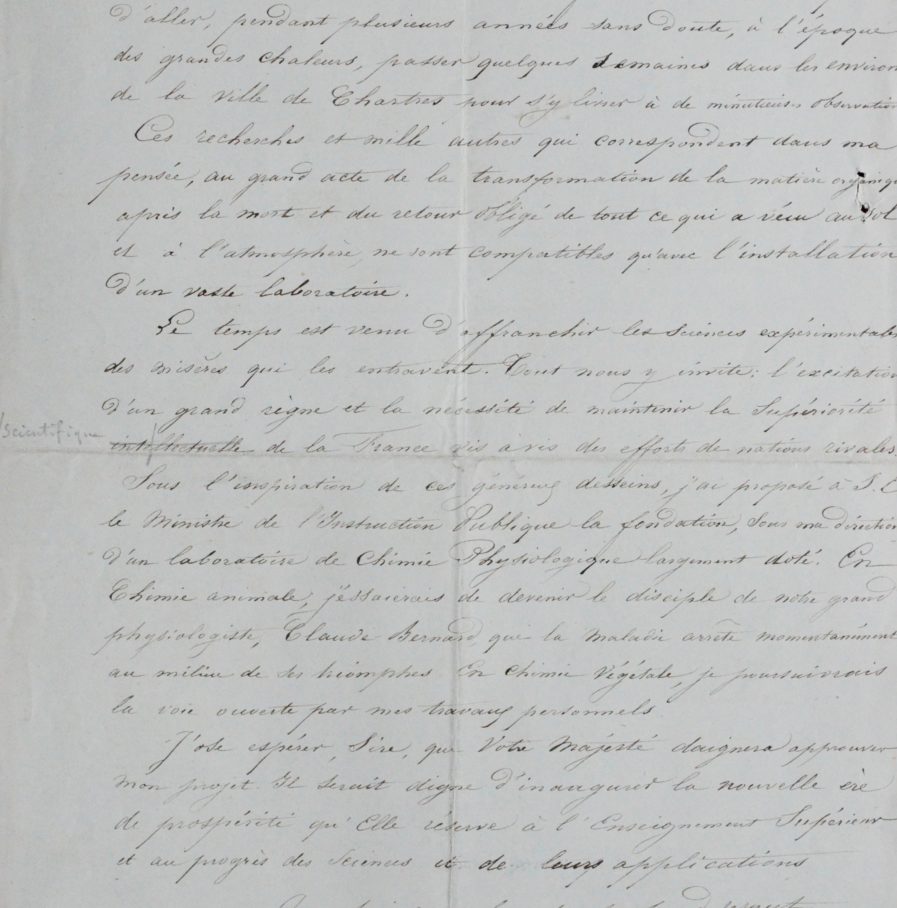 d'aller, pendant plusieurs années sans doute, à l'époque
des grandes chaleurs, passer quelques semaines dans les environ
de la ville de Chartres pour s'y livrer à de minutieuses observation
Ces recherches et mille autres qui correspondent dans ma
pensée, au grand acte de la transformation de la matière organiqu
après la mort et du retour obligé de tout ce qui a vécu au sol
et à l'atmosphère, ne sont compatibles qu'avec l'installation
d'un vaste laboratoire.
Le temps est venu d'affranchir les Sciences expérimentale
des misères qui les entravent. Tout nous y invite: l'excitation
d'un grand règne et la nécessité de maintenir la Supériorité
scientifique
intellectuelle de la France vis à vis des efforts de nations rivales.
Sous l'inspiration de ces généreux desseins, j'ai proposé à S. E
le Ministre de l'Instruction Publique la fondation, Sous ma direction
d'un laboratoire de Chimie Physiologique largement doté. En
Chimie animale, j'essaierais de devenir le disciple de notre grand
physiologiste, Claude Bernard, que la maladie arrête momentanément
au milieu de ses triomphes. En Chimie Végétale, je poursuivrais
la voie ouverte par mes travaux personnels
J'ose espérer, Sire, que Votre Majesté daignera approuver
mon projet. Il serait digne d'inaugurer la nouvelle ère
de prospérité qu'Elle réserve à l'Enseignement Supérieur
et au progrès des Sciences et de leurs applications